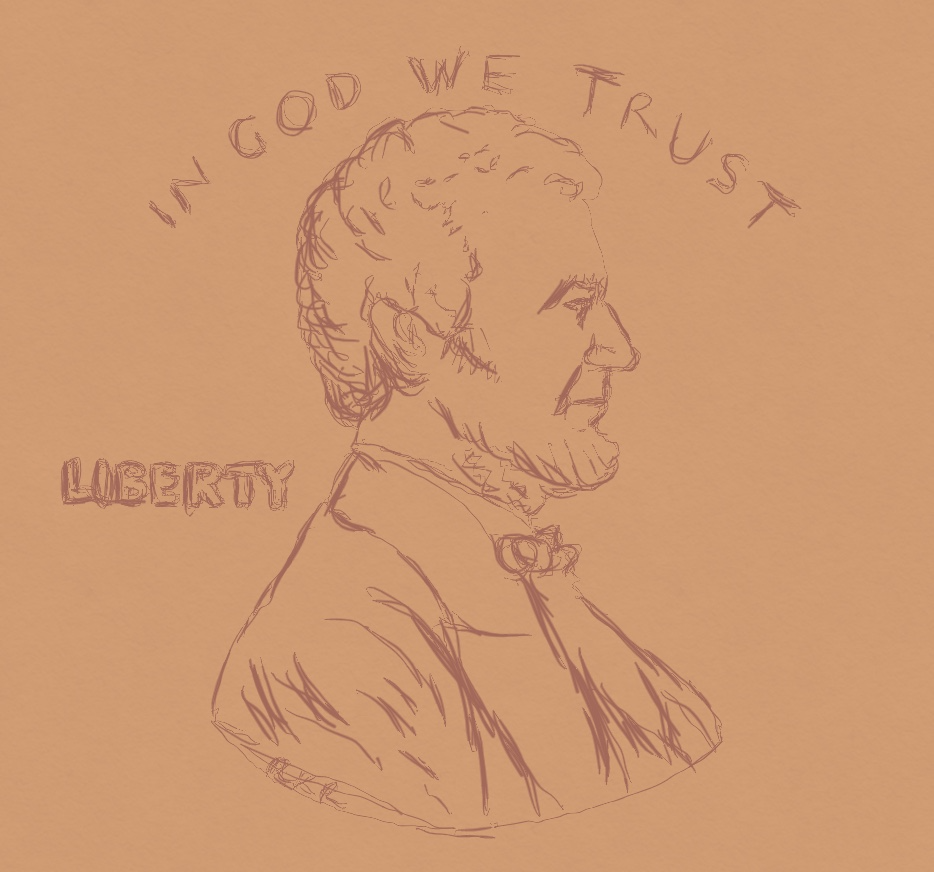 IN GOD WE TRUST
LIBERTY